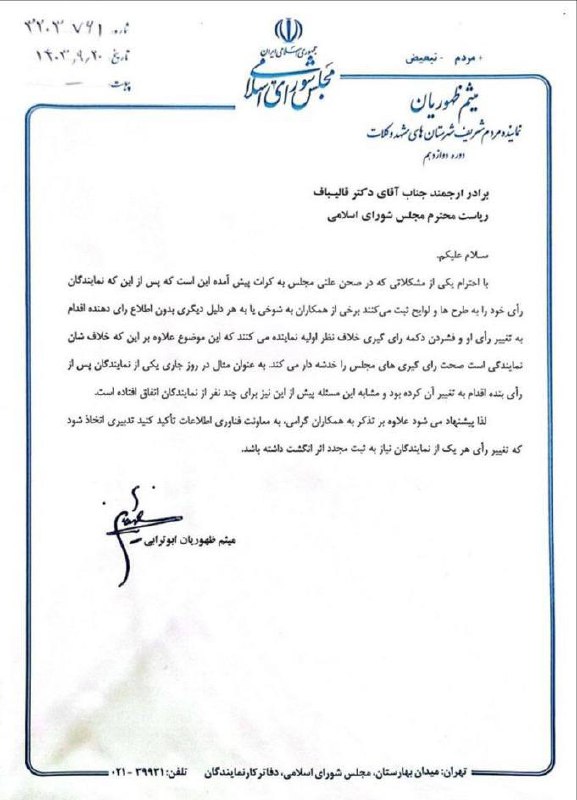 جمهوری اسلامی ایران
مجلس شورای اسلامی
شماره: ۳۲۰۳۰۷۶۱
تاریخ: ۱۴۰۳,۹,۲۰
پیوست: —
+ مردم - تبعیض
میثم ظهوریان
نماینده مردم شریف شهرستان های مشهد و کلات
دوره دوازدهم
برادر ارجمند جناب آقای دکتر قالیباف
ریاست محترم مجلس شورای اسلامی
سلام علیکم.
با احترام یکی از مشکلاتی که در صحن علنی مجلس به کرات پیش آمده این است که پس از این که نمایندگان
رأی خود را به طرح ها و لوایح ثبت می‌کنند برخی از همکاران به شوخی یا به هر دلیل دیگری بدون اطلاع رای دهنده اقدام
به تغییر رأی او و فشردن دکمه رای گیری خلاف نظر اولیه نماینده می کنند که این موضوع علاوه بر این که خلاف شان
نمایندگی است صحت رای گیری های مجلس را خدشه دار می کند. به عنوان مثال در روز جاری یکی از نمایندگان پس از
رأی بنده اقدام به تغییر آن کرده بود و مشابه این مسئله پیش از این نیز برای چند نفر از نمایندگان اتفاق افتاده است.
لذا پیشنهاد می شود علاوه بر تذکر به همکاران گرامی، به معاونت فناوری اطلاعات تأکید کنید تدبیری اتخاذ شود
که تغییر رأی هر یک از نمایندگان نیاز به ثبت مجدد اثر انگشت داشته باشد.
میثم ظهوریان ابوترابی
تهران: میدان بهارستان، مجلس شورای اسلامی، دفاتر کار نمایندگان تلفن: ۳۹۹۳۱-۰۲۱